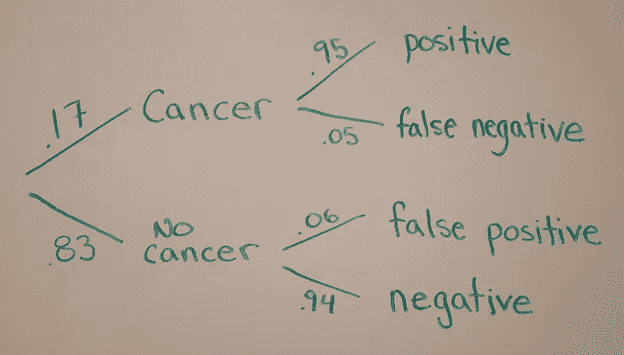 .17
Cancer
.95
positive
.05
false negative
.83
NO
cancer
.06
false positive
.94
negative